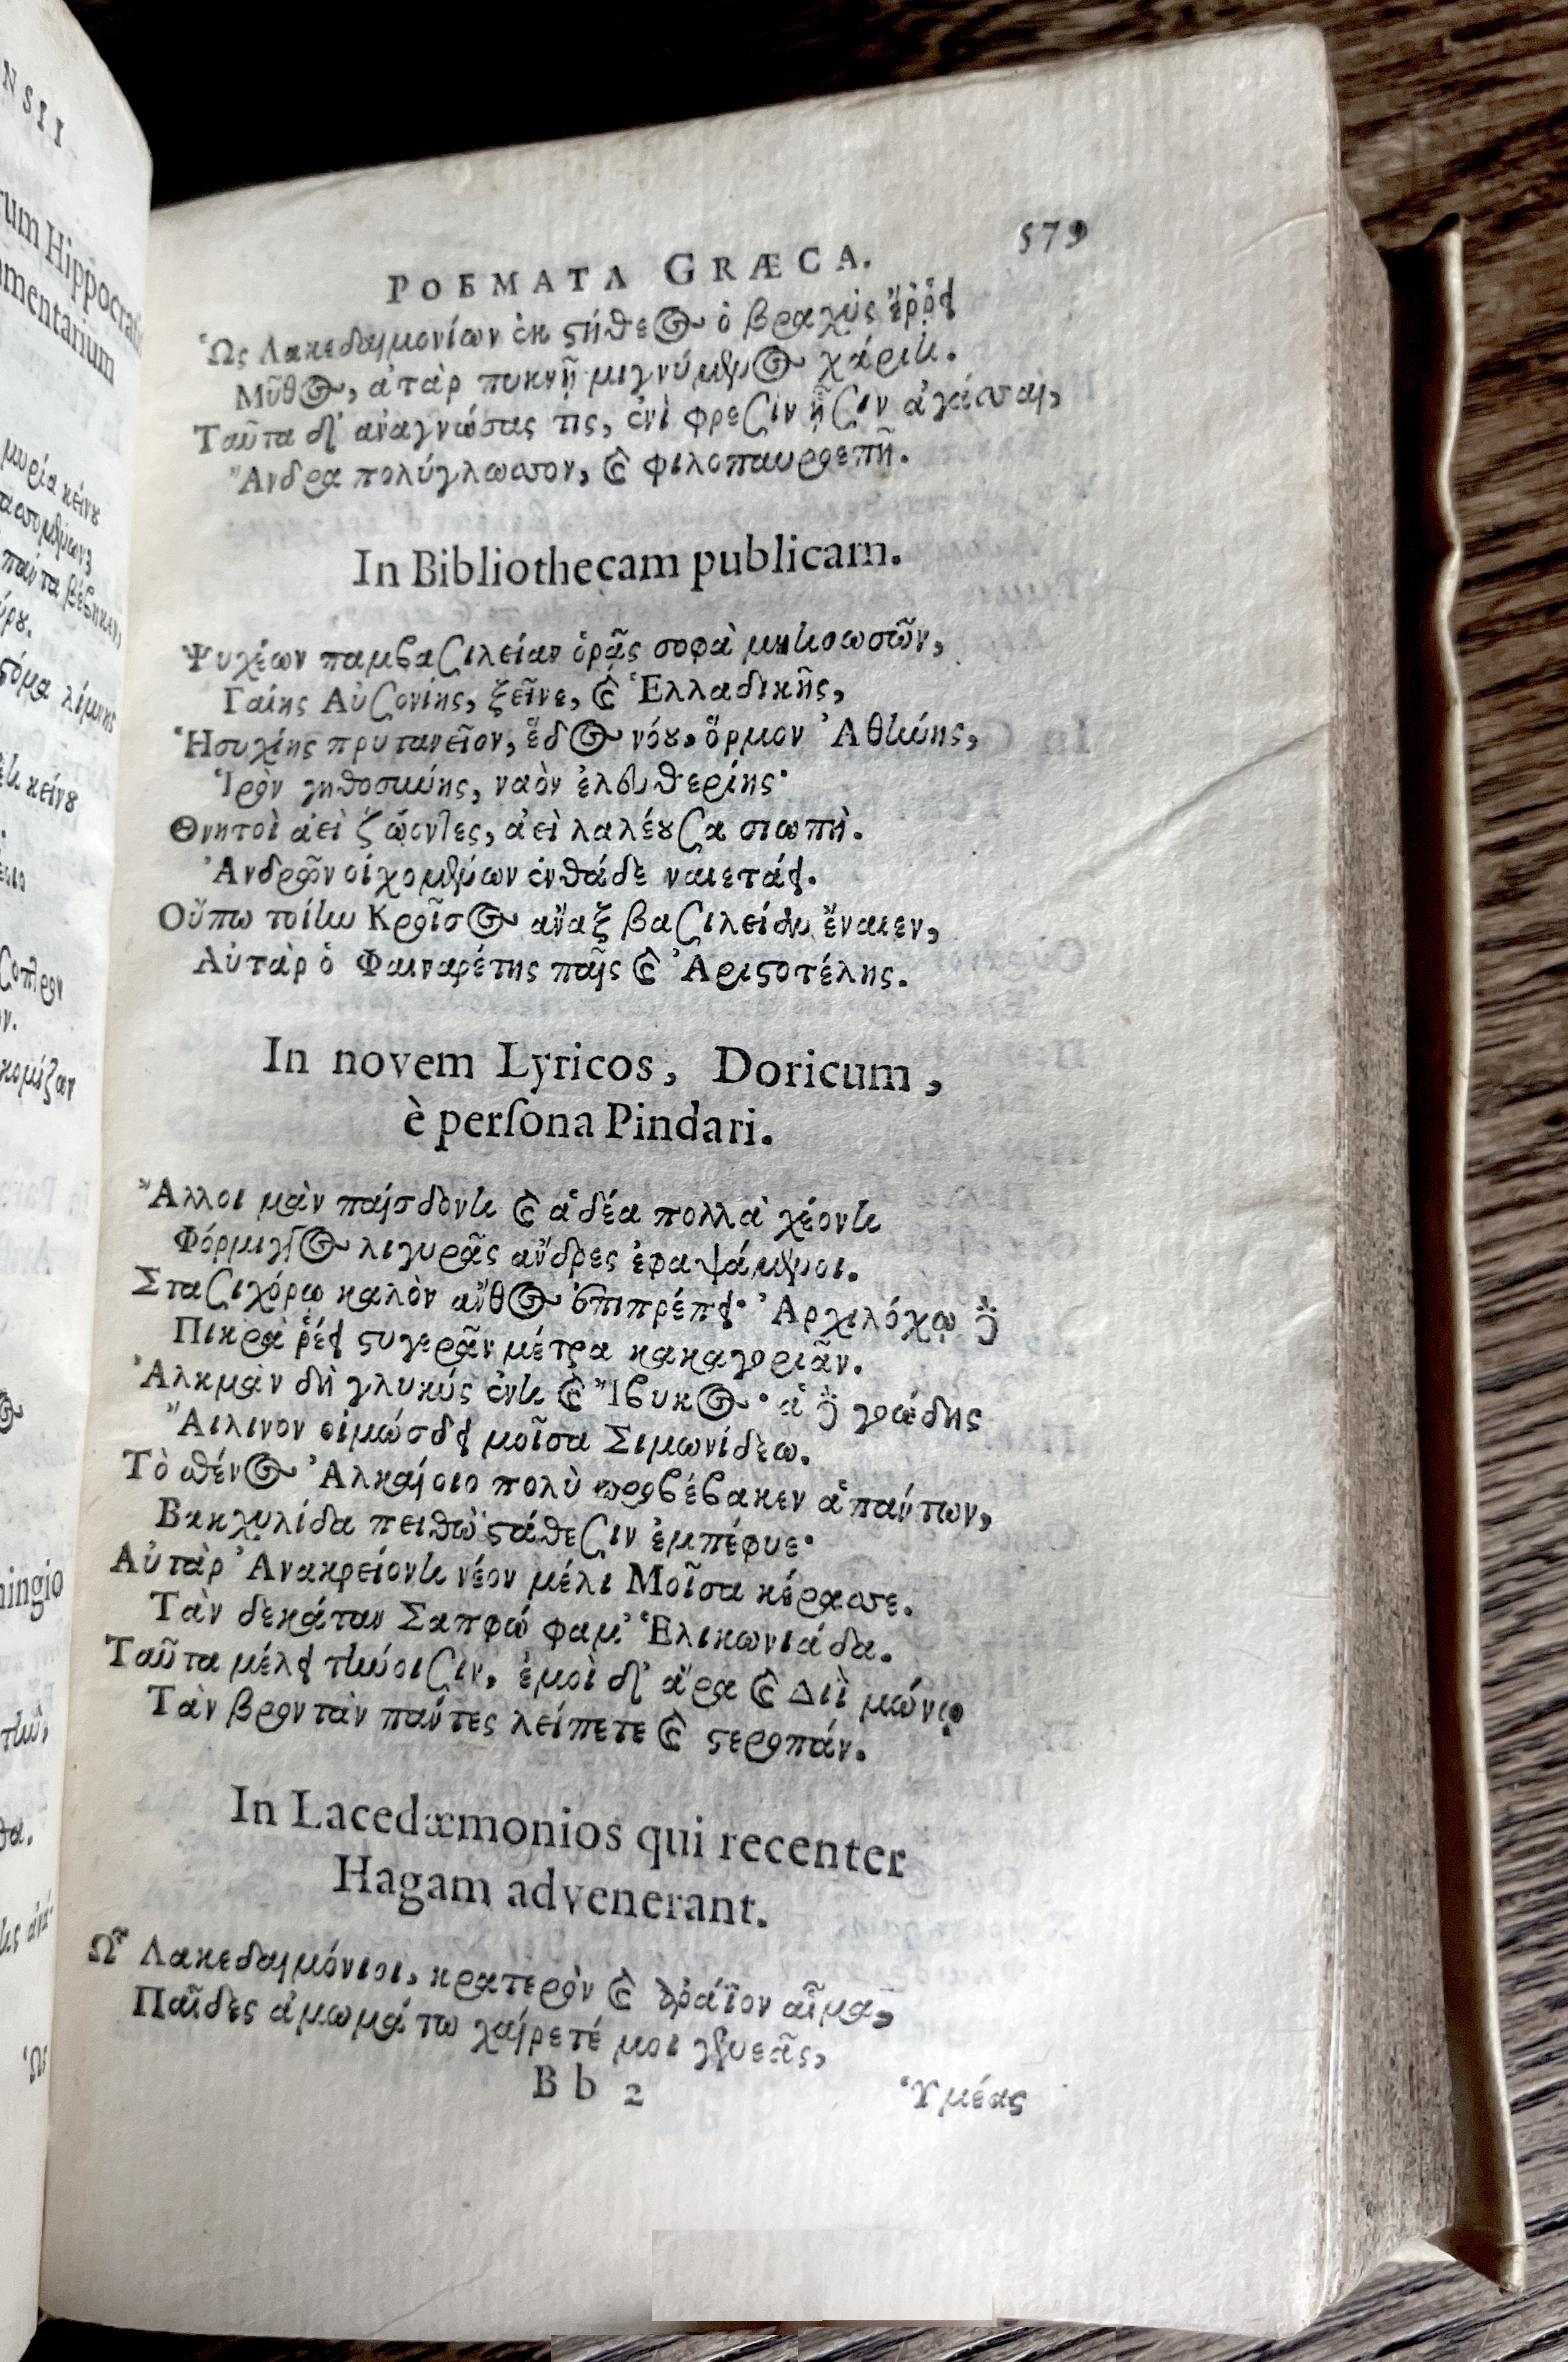 NSII
rum Hippocratis
mmentarium
μυρία κείνȣ
πάντα βέβηκεν,
ύρȣ.
στόμα λίμνης
κείνȣ
κομίζων
ningio
POEMATA GRÆCA. 579
Ὡς Λακεδαιμονίων ἐκ στήθεος ὁ βραχὺς ἔρρει
Μῦθος, ἀτὰρ πυκνῇ μιγνύμενος χάριτι.
Ταῦτα δ' ἀναγνώσας τις, ἐνὶ φρεσὶν ᾗσιν ἀγάσσαι,
Ἄνδρα πολύγλωσσον, καὶ φιλοπαυροεπῆ.
In Bibliothecam publicam.
Ψυχέων παμβασιλείαν ὁρᾷς σοφὰ μητιοωσῶν,
Γαίης Αὐσονίης, ξεῖνε, καὶ Ἑλλαδικῆς,
Ἡσυχίης πρυτανεῖον, ἕδος νόȣ, ὅρμον Ἀθήνης,
Ἱρὸν γηθοσύνης, ναὸν ἐλευθερίης·
Θνητοὶ ἀεὶ ζώοντες, ἀεὶ λαλέȣσα σιωπὴ.
Ἀνδρῶν οἰχομένων ἐνθάδε ναιετάει.
Οὔπω τοίην Κροῖσος ἄναξ βασιλείδα ἔναιεν,
Αὐτὰρ ὁ Φαιναρέτης παῖς καὶ Ἀριστοτέλης.
In novem Lyricos, Doricum,
è perſona Pindari.
Ἄλλοι μὰν παίσδοντι καὶ ἁδέα πολλὰ χέοντι
Φόρμιγγος λιγυρᾶς ἄνδρες ἐφαψάμενοι.
Στασιχόρῳ καλὸν ἄνθος ἐπιπρέπει· Ἀρχιλόχῳ δὲ
Πικρὰ ῥέει στυγερᾶν μέτρα κακαγοριᾶν.
Ἀλκμὰν δὴ γλυκύς ἐντι καὶ Ἴβυκος· ἁ δὲ γοώδης
Ἄιλινον οἰμώσδει μοῖσα Σιμωνίδεω.
Τὸ σθένος Ἀλκαίοιο πολὺ προβέβακεν ἁπάντων,
Βακχυλίδα πειθὼ στάθεσιν ἐμπέφυε·
Αὐτὰρ Ἀνακρείοντι νέον μέλι Μοῖσα κέρασσε.
Τὰν δεκάταν Σαπφώ φαμ' Ἑλικωνιάδα.
Ταῦτα μέλει τήνοισιν, ἐμοὶ δ' ἄρα καὶ Διῒ μώνῳ
Τὰν βροντὰν πάντες λείπετε καὶ στεροπάν.
In Lacedæmonios qui recenter
Hagam advenerant.
Ὦ Λακεδαιμόνιοι, κρατερὸν καὶ αἷμα,
Παῖδες ἀμωμάτω χαίρετέ μοι γενεᾶς,
Bb 2 Ὑμέας